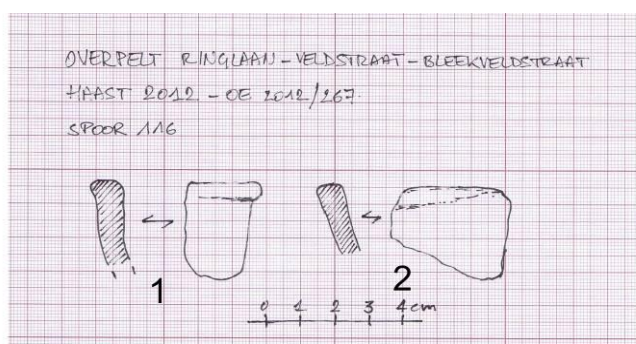 OVERPELT RINGLAAN-VELDSTRAAT-BLEEKVELDSTRAAT
HAAST 2012 - OE 2012/267.
SPOOR 116
1
2
0 1 2 3 4 cm